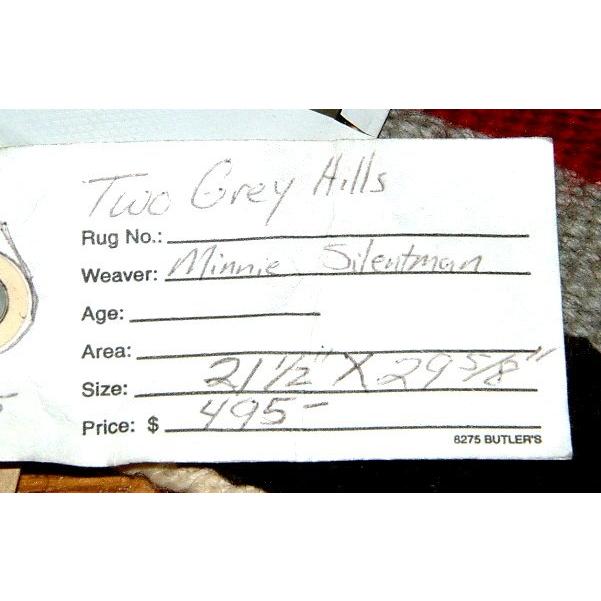 Two Grey Hills
Rug No.:
Weaver: Minnie Silentman
Age:
Area:
Size: 21 1/2" X 29 5/8"
Price: $ 495-
8275 BUTLER'S